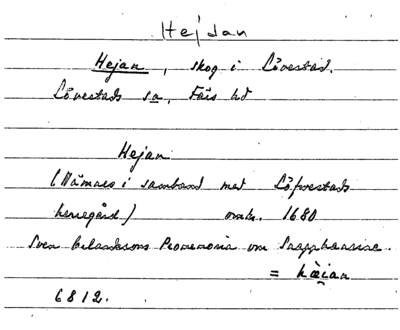 Hejdan
Hejan, skog i Lövestad.
Lövestads sn, Färs hd
Hejan
(Nämnes i samband med Löfvestads
herregård) omkr. 1680
Sven Promemoria om
= hæian
6812.